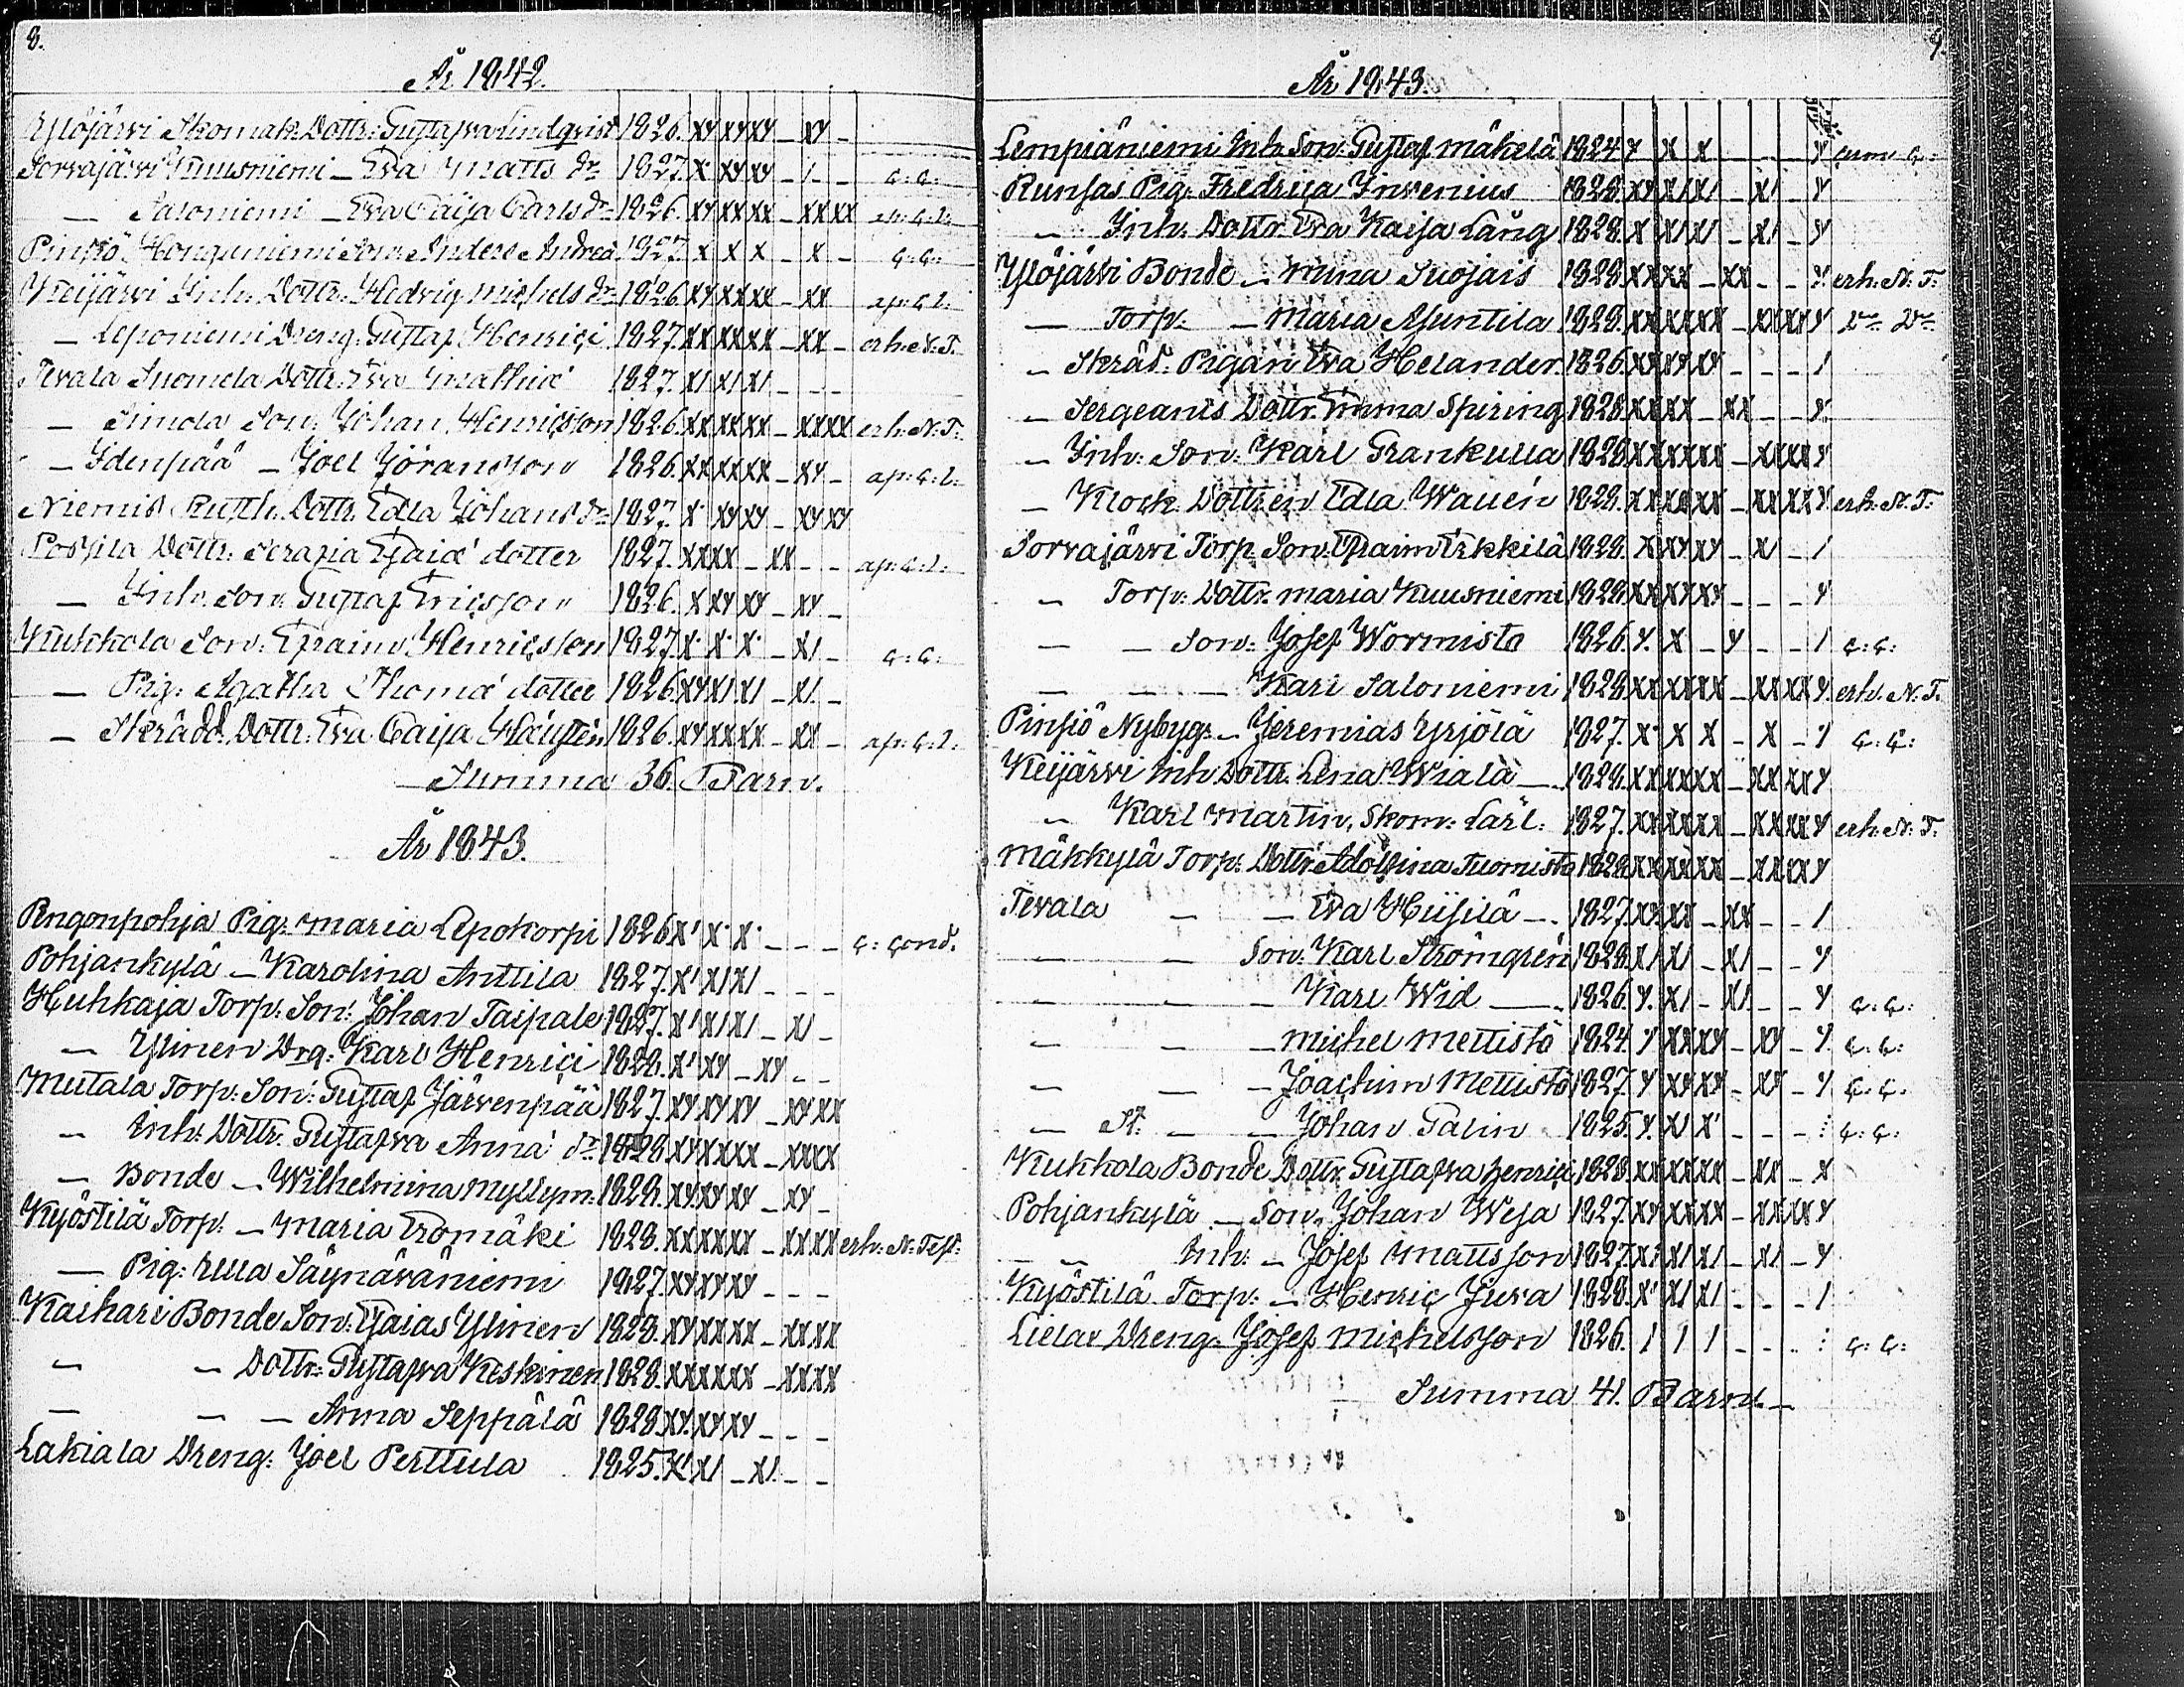 8.
År 1842.
Ylöjärvi Skomak. Dottr: Gustafva Lindqvist 1826. xy xy xy _ xy _
Sorvajärvi Kuusniemi _ Eva Matts dr 1827. x· xy xy _ 1 _ _ c: c:
_ Saloniemi _ Eva Caija Carls dr 1826. xy xx xx _ xx xx ap: c: l:
Pinsiö Hongoniemi Son: Anders Andreæ 1827. x x x _ x _ c: c:
Keijärvi Inh. Dottr: Hedvig Michels dr 1826. xy xx xx _ xx ap: c: l:
_ Leponiemi Dreng: Gustaf Henrici 1827. xx xx xx _ xx _ erh: N: T.
Tevala Suomela Dottr: Eva Mathiæ 1827. x1 x1 x1 _ _ _
_ Simola Son: Johan Henricsson 1826. xx xx xx _ xx xx erh: N: T:
_ Idenpää _ Joel Jöransson 1826. xx xx xx _ xy _ ap: c: l:
Niemis Rusth. Dottr. Edla Johans dr 1827. x· xy xy _ xy xy
Possila Dottr: Serafia Esaiæ dotter 1827. xx xx _ xx _ _ ap: c: l:
_ Inh. Son: Gustaf Ericsson 1826. x xy xy _ xy _
Kukkola Son: Efraim Henricsson 1827. x· x· x· _ x1 _ c: c:
_ Pig: Agatha Thomæ dotter 1826. xy x1 x1 _ x1 _
_ Skrädd. Dottr: Eva Caija 1826. xy xx xx _ xx _ ap: c: l:
Summa 36. Barn.
År 1843.
Pengonpohja Pig: Maria Lepokorpi 1826 x' x· x· _ _ _ c: cond.
Pohjankylä _ Karolina Anttila 1827. x' x1 x1 _ _ _
Huhkaja Torp: Son: Johan Taipale 1827. x' x1 x1 _ x1 _
_ Ylinen Drg: Karl Henrici 1828. x' xy _ xy _ _
Mutala Torp: Son: Gustaf Järvenpää 1827. xy xy xy _ xy xx
_ Inh: Dottr. Gustafva Anna dr 1828 xy xx xx _ xx xx
_ Bonde _ Wilhelmina Myllym: 1828. xy xy xy _ xy _
Kyöstilä Torp: _ Maria Eromäki 1828. xx xx xx _ xx xx erh: N: Test:
_ Pig: Ulla Säynäväniemi 1827. xy xy xy _ _ _
Kaihari Bonde Son: Esaias Ylinen 1828. xy xx xx _ xx xx
_ _ Dottr: Gustafva Keskinen 1828. xx xx xx _ xx xx
_ _ _ Anna Seppälä 1828 xy xy xy _ _ _
Lakiala Dreng: Joel Perttula 1825. x' x1 _ x1 _ _
9.
År 1843.
Lempiäniemi Inh. Son: Gustaf Mäkelä 1824 y x x _ _ _ y
Runsas Pig: Fredrica Invenius 1828. xy x1 x1 _ x1 _ y
_ Inh: Dottr. Eva Kaisa Lång 1828. x x1 x1 _ x1 _ y
Ylöjärvi Bonde _ Miina Suojais 1828. xx xx _ xx _ _ y erh: N: T:
_ Torp: _ Maria Asuntila 1828. xx xx xx _ xx xx y Do Do
_ Skräd: Pigan Eva Helander 1826. xy xy xy _ _ _ 1
_ Sergeants Dottr. Emma Spiring 1828. xx xx _ xx _ _ y
_ Inh: Son: Karl Grankulla 1828 xx xx xx _ xx xx y
_ Klock. Dottren Edla Wallén 1828. xx xx xx _ xx xx y erh: N: T:
Sorvajärvi Torp: Son: Efraim Erkkilä 1828. x xy xy _ x1 _ 1
_ Torp: Dottr. Maria Kuusniemi 1828. xx xy xy _ _ _ y
_ _ Son: Josef Wormisto 1826. y. x _ y _ _ 1 c: c:
_ _ _ Karl Saloniemi 1828 xx xx xx _ xx xx y erh: N. T.
Pinsiö Nybyg: _ Jeremias Yrjölä 1827. x· x x _ x _ y c: c:
Keijärvi Inh. Dottr. Lena Wiala _ 1828. xx xx xx _ xx xx y
_ Karl Martin, Skom: Lärl: 1827. xx xx xx _ xx xx y erh: N: T.
Mäkkylä Torp: Dottr Adolfina Tuomisto 1828 xx xx xx _ xx xx y
Tevala _ _ Eva Hiisilä _ . 1827. xx xx _ xx _ _ 1
_ _ Son: Karl Strömgrén 1828. x1 x1 _ x1 _ _ y
_ _ _ Karl Wid _ 1826. y. x1 _ x1 _ _ y c: c:
_ _ _ Michel Mettistö 1824. y xx xy _ xy _ y c: c:
_ _ _ Joachim Mettistö 1827. y xy xy _ xy _ y c: c:
_ St. _ _ Johan Galin 1825. y. x1 x' _ _ _ : c: c:
Kukkola Bonde Dottr. Gustafva Henrici 1828. xx xx xx _ xx _ x
Pohjankylä _ Son, Johan Weja 1827. xy xx xx _ xx xx y
_ _ Inh: _ Josef Mattsson 1827. x1 x1 x1 _ x1 _ y
Kyöstilä Torp: _ Henric Juva 1828. x' x1 x1 _ _ _ 1
Lielax Dreng: Josef Michelsson 1826. 1 1 1 _ _ _ : c: c:
Summa 41. Barn _